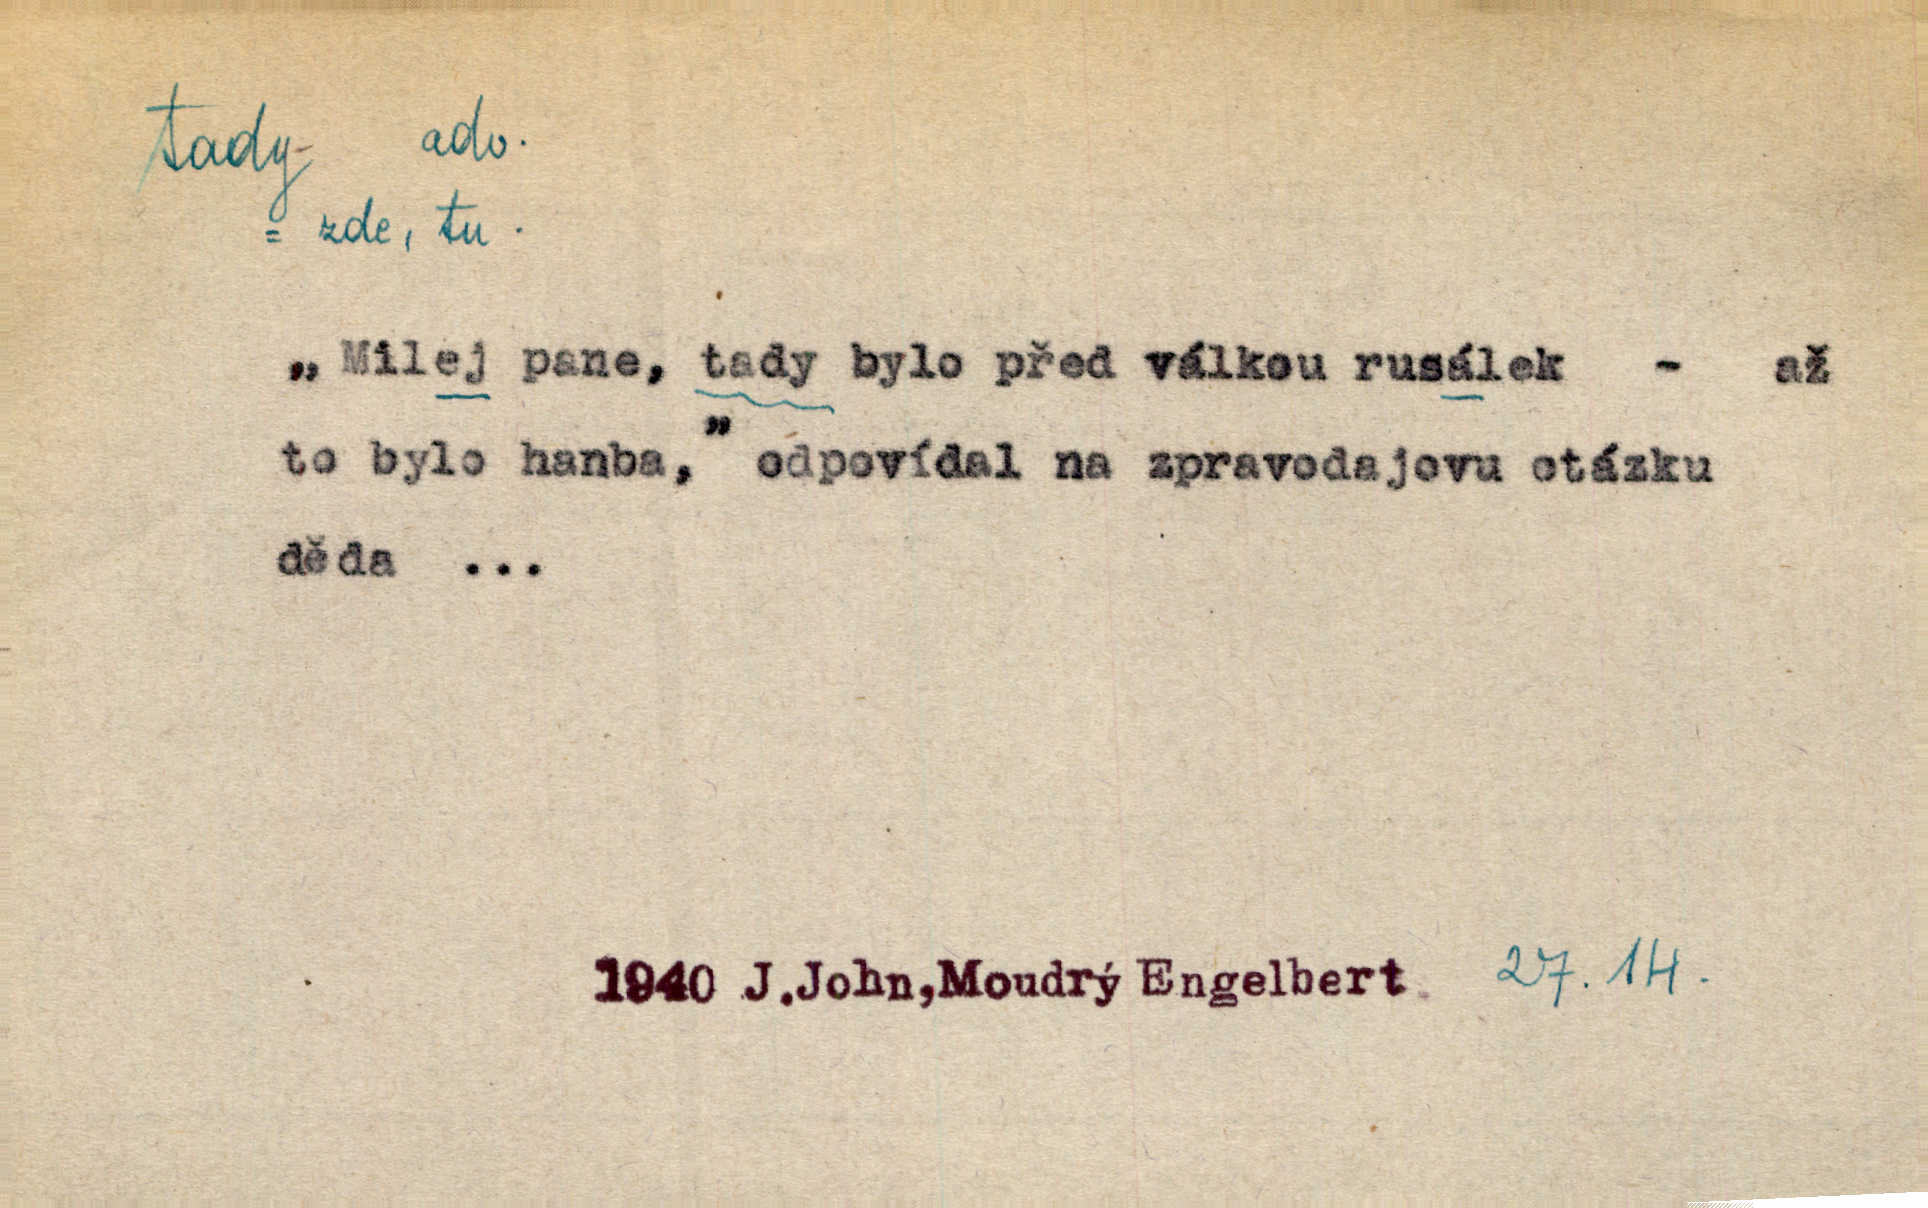 tady adv.
= zde, tu.
„Milej pane, tady bylo před válkou rusálek - až
to bylo hanba,” odpovídal na zpravodajovu otázku
děda ...
1940 J.John,Moudrý Engelbert 27. 14.